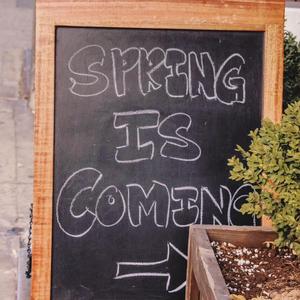 SPRING
IS
COMING